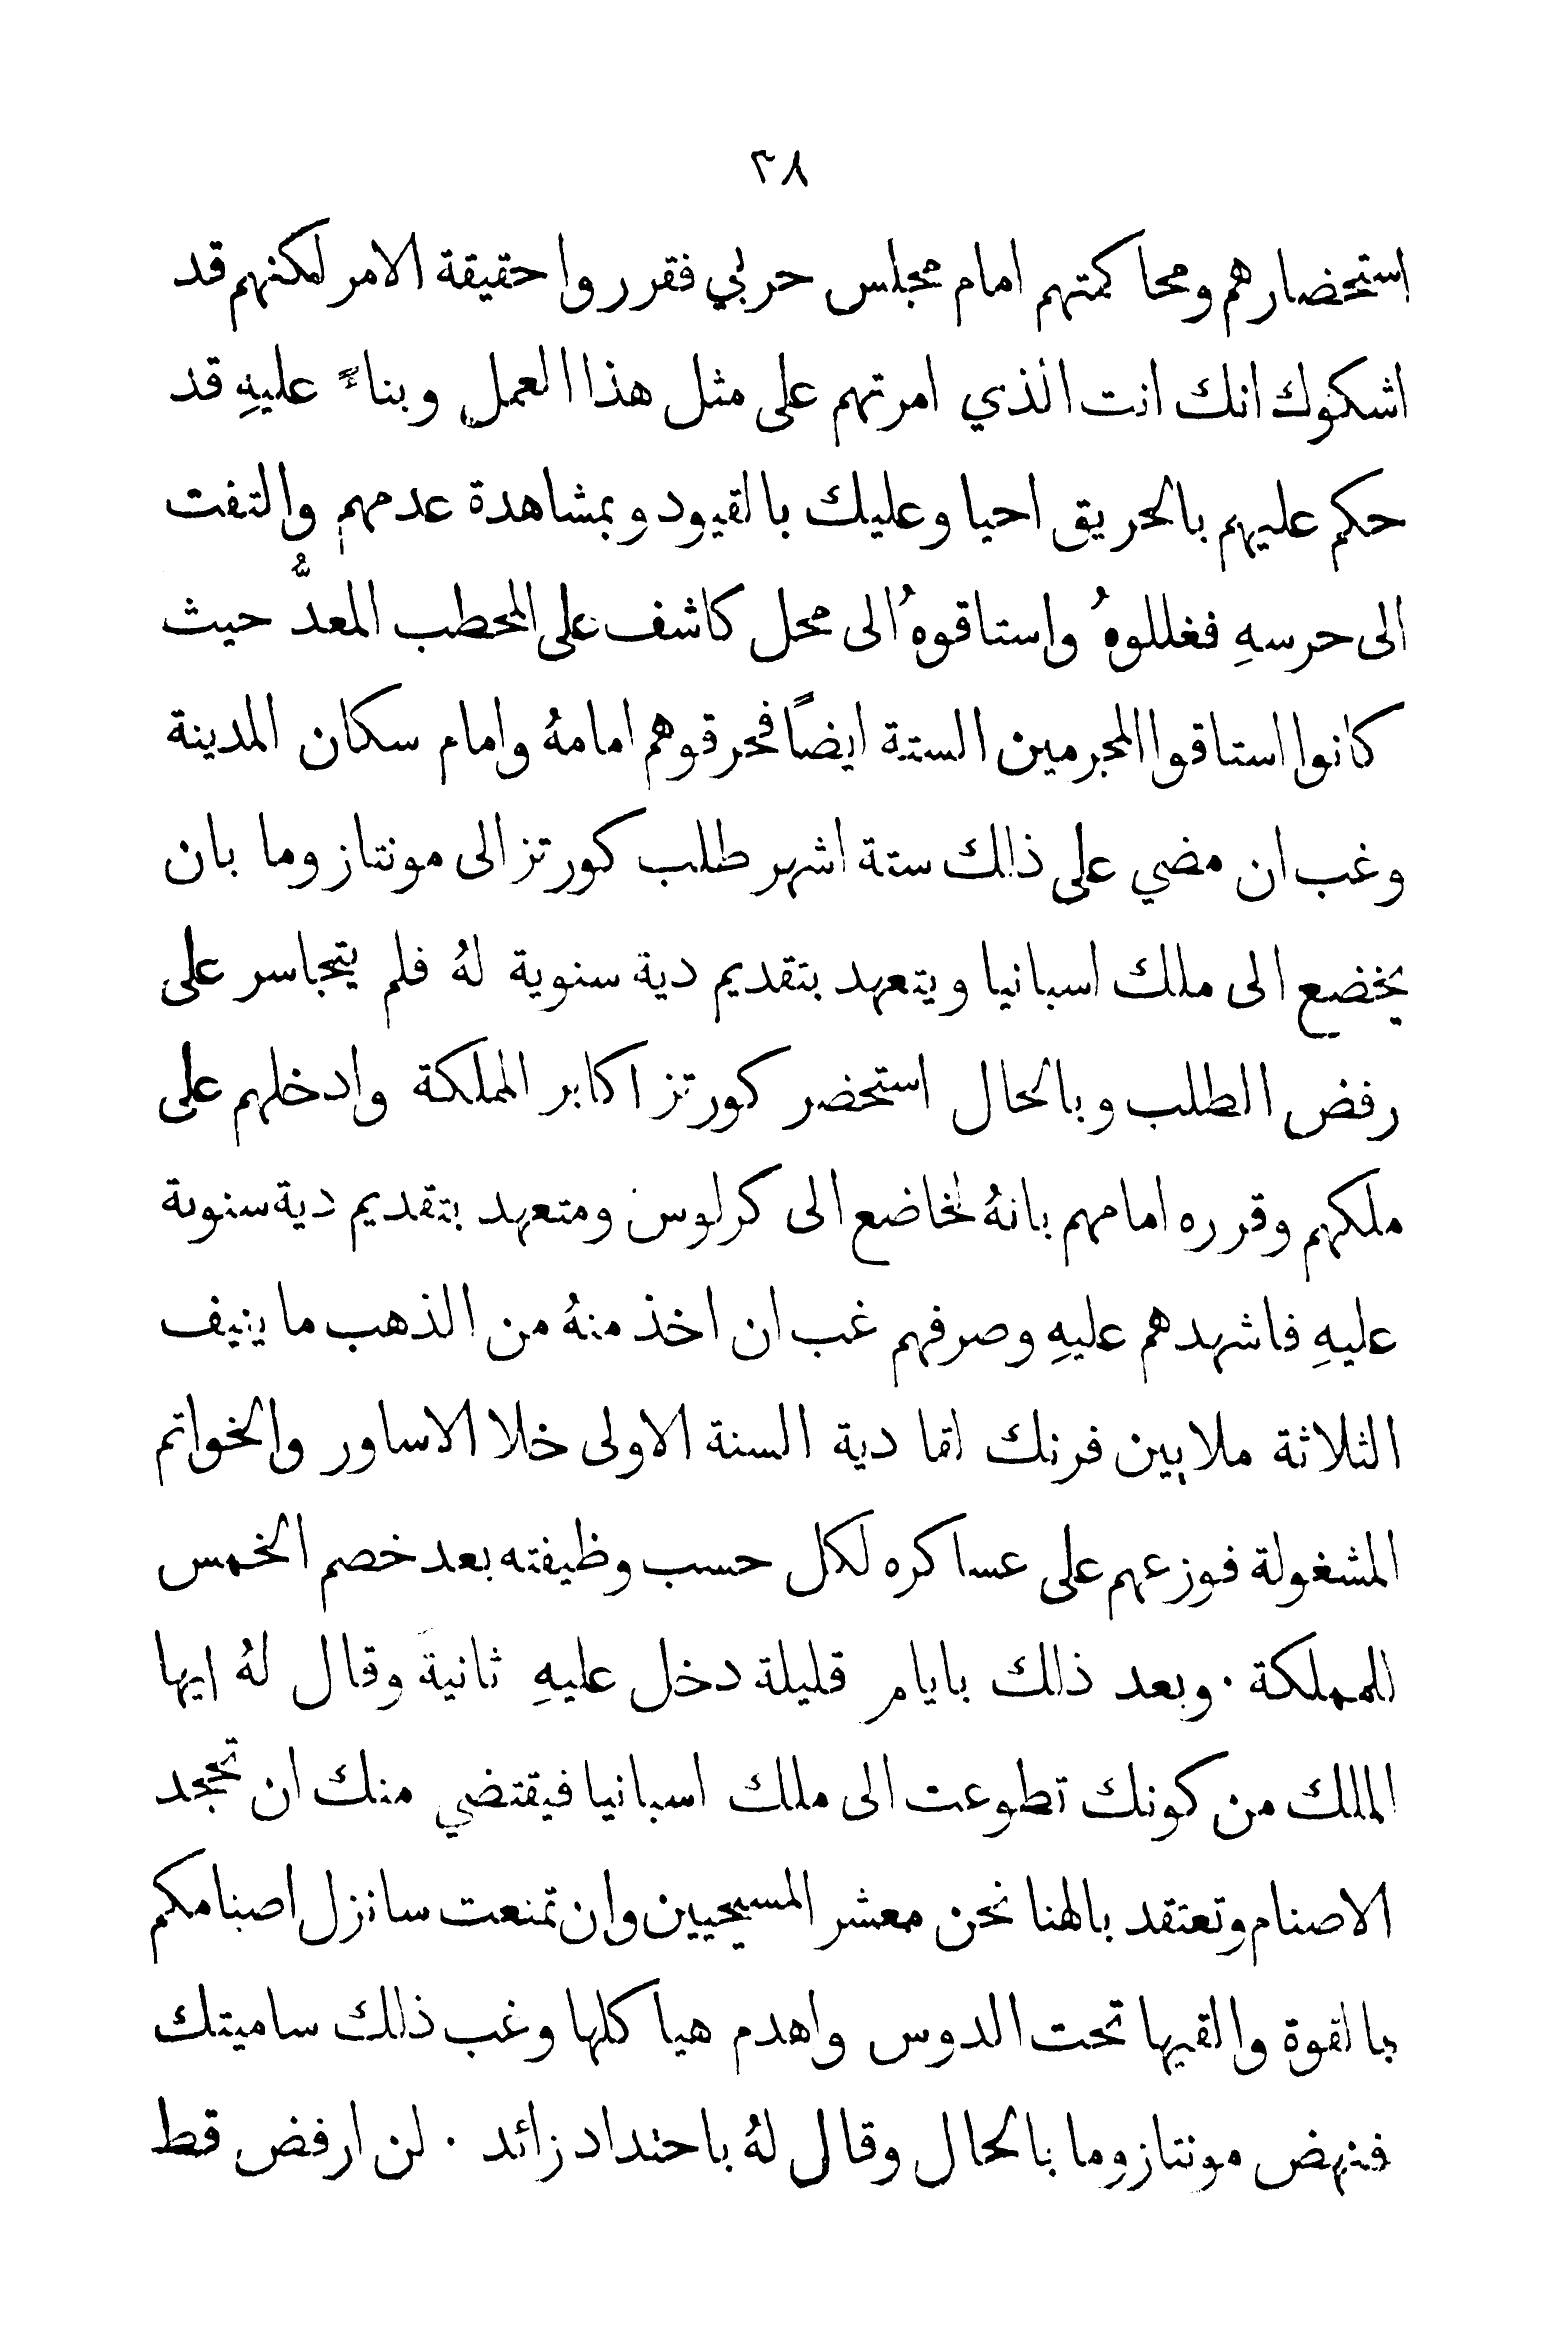 ٣٨
استحضارهم ومحاكمتهم امام مجلس حربي فقرروا حقيقة الامر لكنهم قد
اشكوك انك انت الذي امرتهم على مثل هذا العمل وبناءً عليهِ قد
حكم عليهم بالحريق احيا وعليك بالقيود وبمشاهدة عدمهم والتفت
الى حرسهِ فغللوهُ واستاقوهُ الى محل كاشف على المحطب المعدُّ حيث
كانوا استاقوا المجرمين الستة ايضًا فحرقوهم امامهُ وامام سكان المدينة
وغب ان مضي على ذلك ستة اشهر طلب كورتز الى مونتازوما بان
يخضع الى ملك اسبانيا ويتعهد بتقديم دية سنوية لهُ فلم يتجاسر على
رفض الطلب وبالحال استحضر كورتز اكابر المملكة وادخلهم على
ملكهم وقرره امامهم بانهُ لخاضع الى كرلوس ومتعهد بتقديم دية سنوية
عليهِ فاشهدهم عليهِ وصرفهم غب ان اخذ منهُ من الذهب ما ينيف
الثلاثة ملايين فرنك لقا دية السنة الاولى خلا الاساور والخواتم
المشغولة فوزعهم على عساكره لكل حسب وظيفته بعد خصم الخمس
للمملكة ٠ وبعد ذلك بايام قليلة دخل عليهِ ثانيةَ وقال لهُ ايها
الملك من كونك تطوعت الى ملك اسبانيا فيقتضي منك ان تجحد
الاصنام وتعتقد بالهنا نحن معشر المسيحيين وان تمنعت سانزل اصنامكم
بالقوة والقيها تحت الدوس واهدم هياكلها وغب ذلك ساميتك
فنهض مونتازوما بالحال وقال لهُ باحتداد زائد ٠ لن ارفض قط